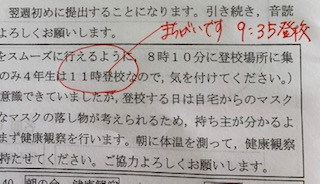 翌週初めに提出することになります。引き続き、音読
よろしくお願いします。
まちがいです 9:35登校
をスムーズに行えるように、8時10分に登校場所に集
のみ4年生は11時登校なので、気を付けてください。)
意識できていましたが、登校する日は自宅からのマスク
なマスクの落し物が考えられるため、持ち主が分かるよ
まず健康観察を行います。朝に体温を測って、健康観察
持たせてください。ご協力よろしくお願いします。
40 朝の会、健康観察